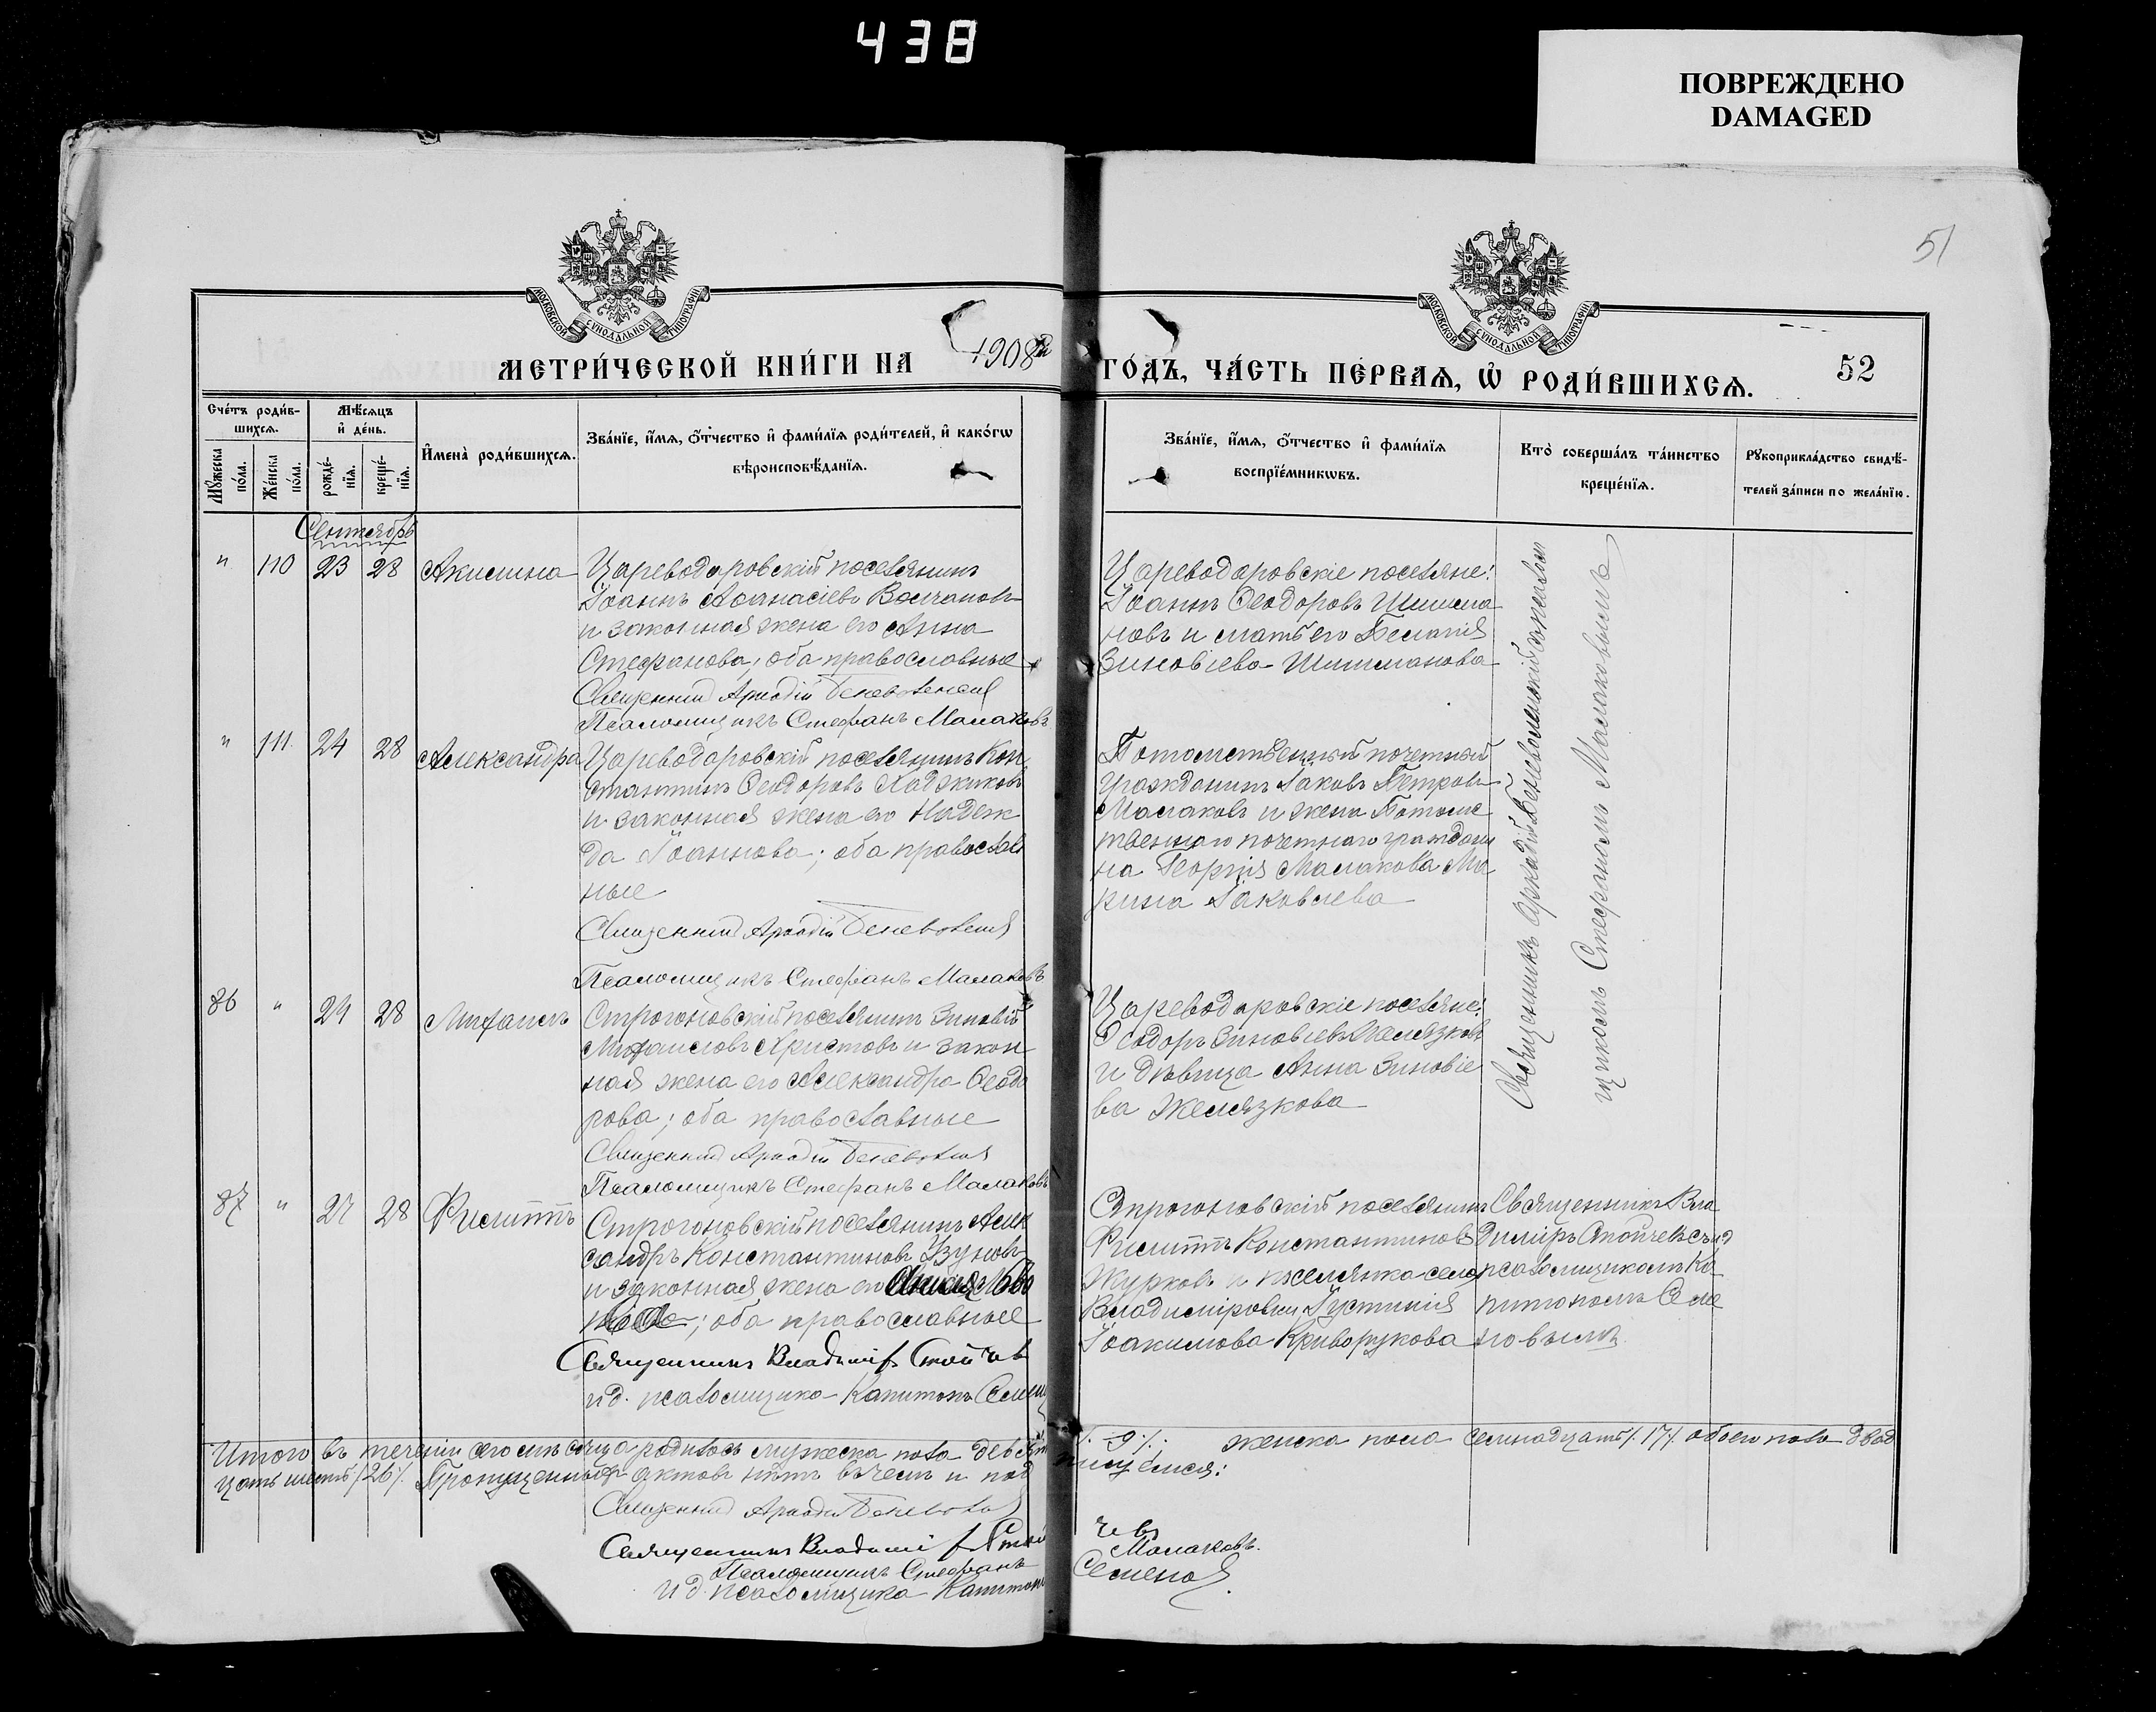 438
ПОВРЕЖДЕНО
DAMAGED
51
МОСКОВСКОЙ СУНОДАЛЬНОЙ ТИПОГРАФІИ
МОСКОВСКОЙ СУНОДАЛЬНОЙ ТИПОГРАФІИ
МЕТРИ́ЧЕСКОЙ КНИ́ГИ НА 1908й ГО́ДЪ, ЧА́СТЬ ПЕ́РВАѦ, Ѡ҆ РОДИ́ВШИХСѦ.
52
Сче́тъ роди́в-
шихсѧ.
Мꙋ́жеска по́ла.
Же́нска по́ла.
Мѣ́сѧцъ
и҆ де́нь.
рожде́-
нїѧ.
креще́-
нїѧ.
И҆мена̀ роди́вшихсѧ.
Зва́нїе, и҆́мѧ, ѻ҆́тчество и҆ фами́лїѧ роди́телей, и҆ како́гѡ
вѣроисповѣ́данїѧ.
Зва́нїе, и҆́мѧ, ѻ҆́тчество и҆ фами́лїѧ
воспрїе́мникѡвъ.
Кто̀ соверша́лъ та́инство
креще́нїѧ.
Рꙋкоприкла́дство свидѣ́-
телей за́писи по жела́нїю.
Сентябрь
" 110 23 28 Акилина
Цареводаровскій поселянинъ
Іоаннъ Аѳанасіевъ Волчановъ
и законная жена его Анна
Стефанова; оба православные
Священник Аркадій
Псаломщикъ Стефанъ Малаковъ
Цареводаровскіе поселяне:
Іоаннъ Ѳеодоровъ Шишма
новъ и мать его Пелагія
Зиновіева Шишманова
Священникъ Аркадій съ псалом
щикомъ Стефаномъ Малаковымъ
" 111 24 28 Александра
Цареводаровскій поселянинъ Кон
стантинъ Ѳеодоровъ Хаджиковъ
и законная жена его Надеж
да Іоаннова; оба православ
ные
Священник Аркадій
Псаломщикъ Стефанъ Малаковъ
Потомственный почетный
гражданинъ Іаковъ Петровъ
Малаковъ и жена Потомс
твеннаго почетнаго граждани
на Георгія Малакова Ма
рина Іаковлева
86 " 24 28 Михаилъ
Строгоновскій поселянинъ Зиновій
Михаиловъ Христовъ и закон
ная жена его Александра Ѳеодо
рова; оба православные
Священник Аркадій
Псаломщикъ Стефанъ Малаковъ
Цареводаровскіе поселяне:
Ѳеодоръ Зиновіевъ Желязковъ
и дѣвица Анна Зиновіе
ва Желязкова
87 " 27 28 Филиппъ
Строгоновскій поселянинъ Алек
сандръ Константиновъ Узуновъ
и законная жена его
; оба православные
Священникъ Владиміръ Стойчев
и д. псаломщика Капитонъ Семен
Строгоновскій поселянинъ
Филиппъ Константиновъ
Журковъ и поселянка села
Владиміровки Іустинія
Іоакимова Криворукова
Священникъ Вла
диміръ Стойчевъ съ и д
псаломщикомъ Ка
питономъ Семе
новымъ
Итого въ теченіи сего мѣсяца родилось мужеска пола девять /. 9 /.; женска пола семнадцать /. 17 /. обоего пола двад
цать шесть /. 26 /. Пропущенныхъ актовъ нѣтъ въ чемъ и подписуемся:
Священник Аркадій
Священникъ Владиміръ Стойчевъ
Псаломщикъ Стефанъ Малаковъ.
и д. псаломщика Капитонъ Семенов.